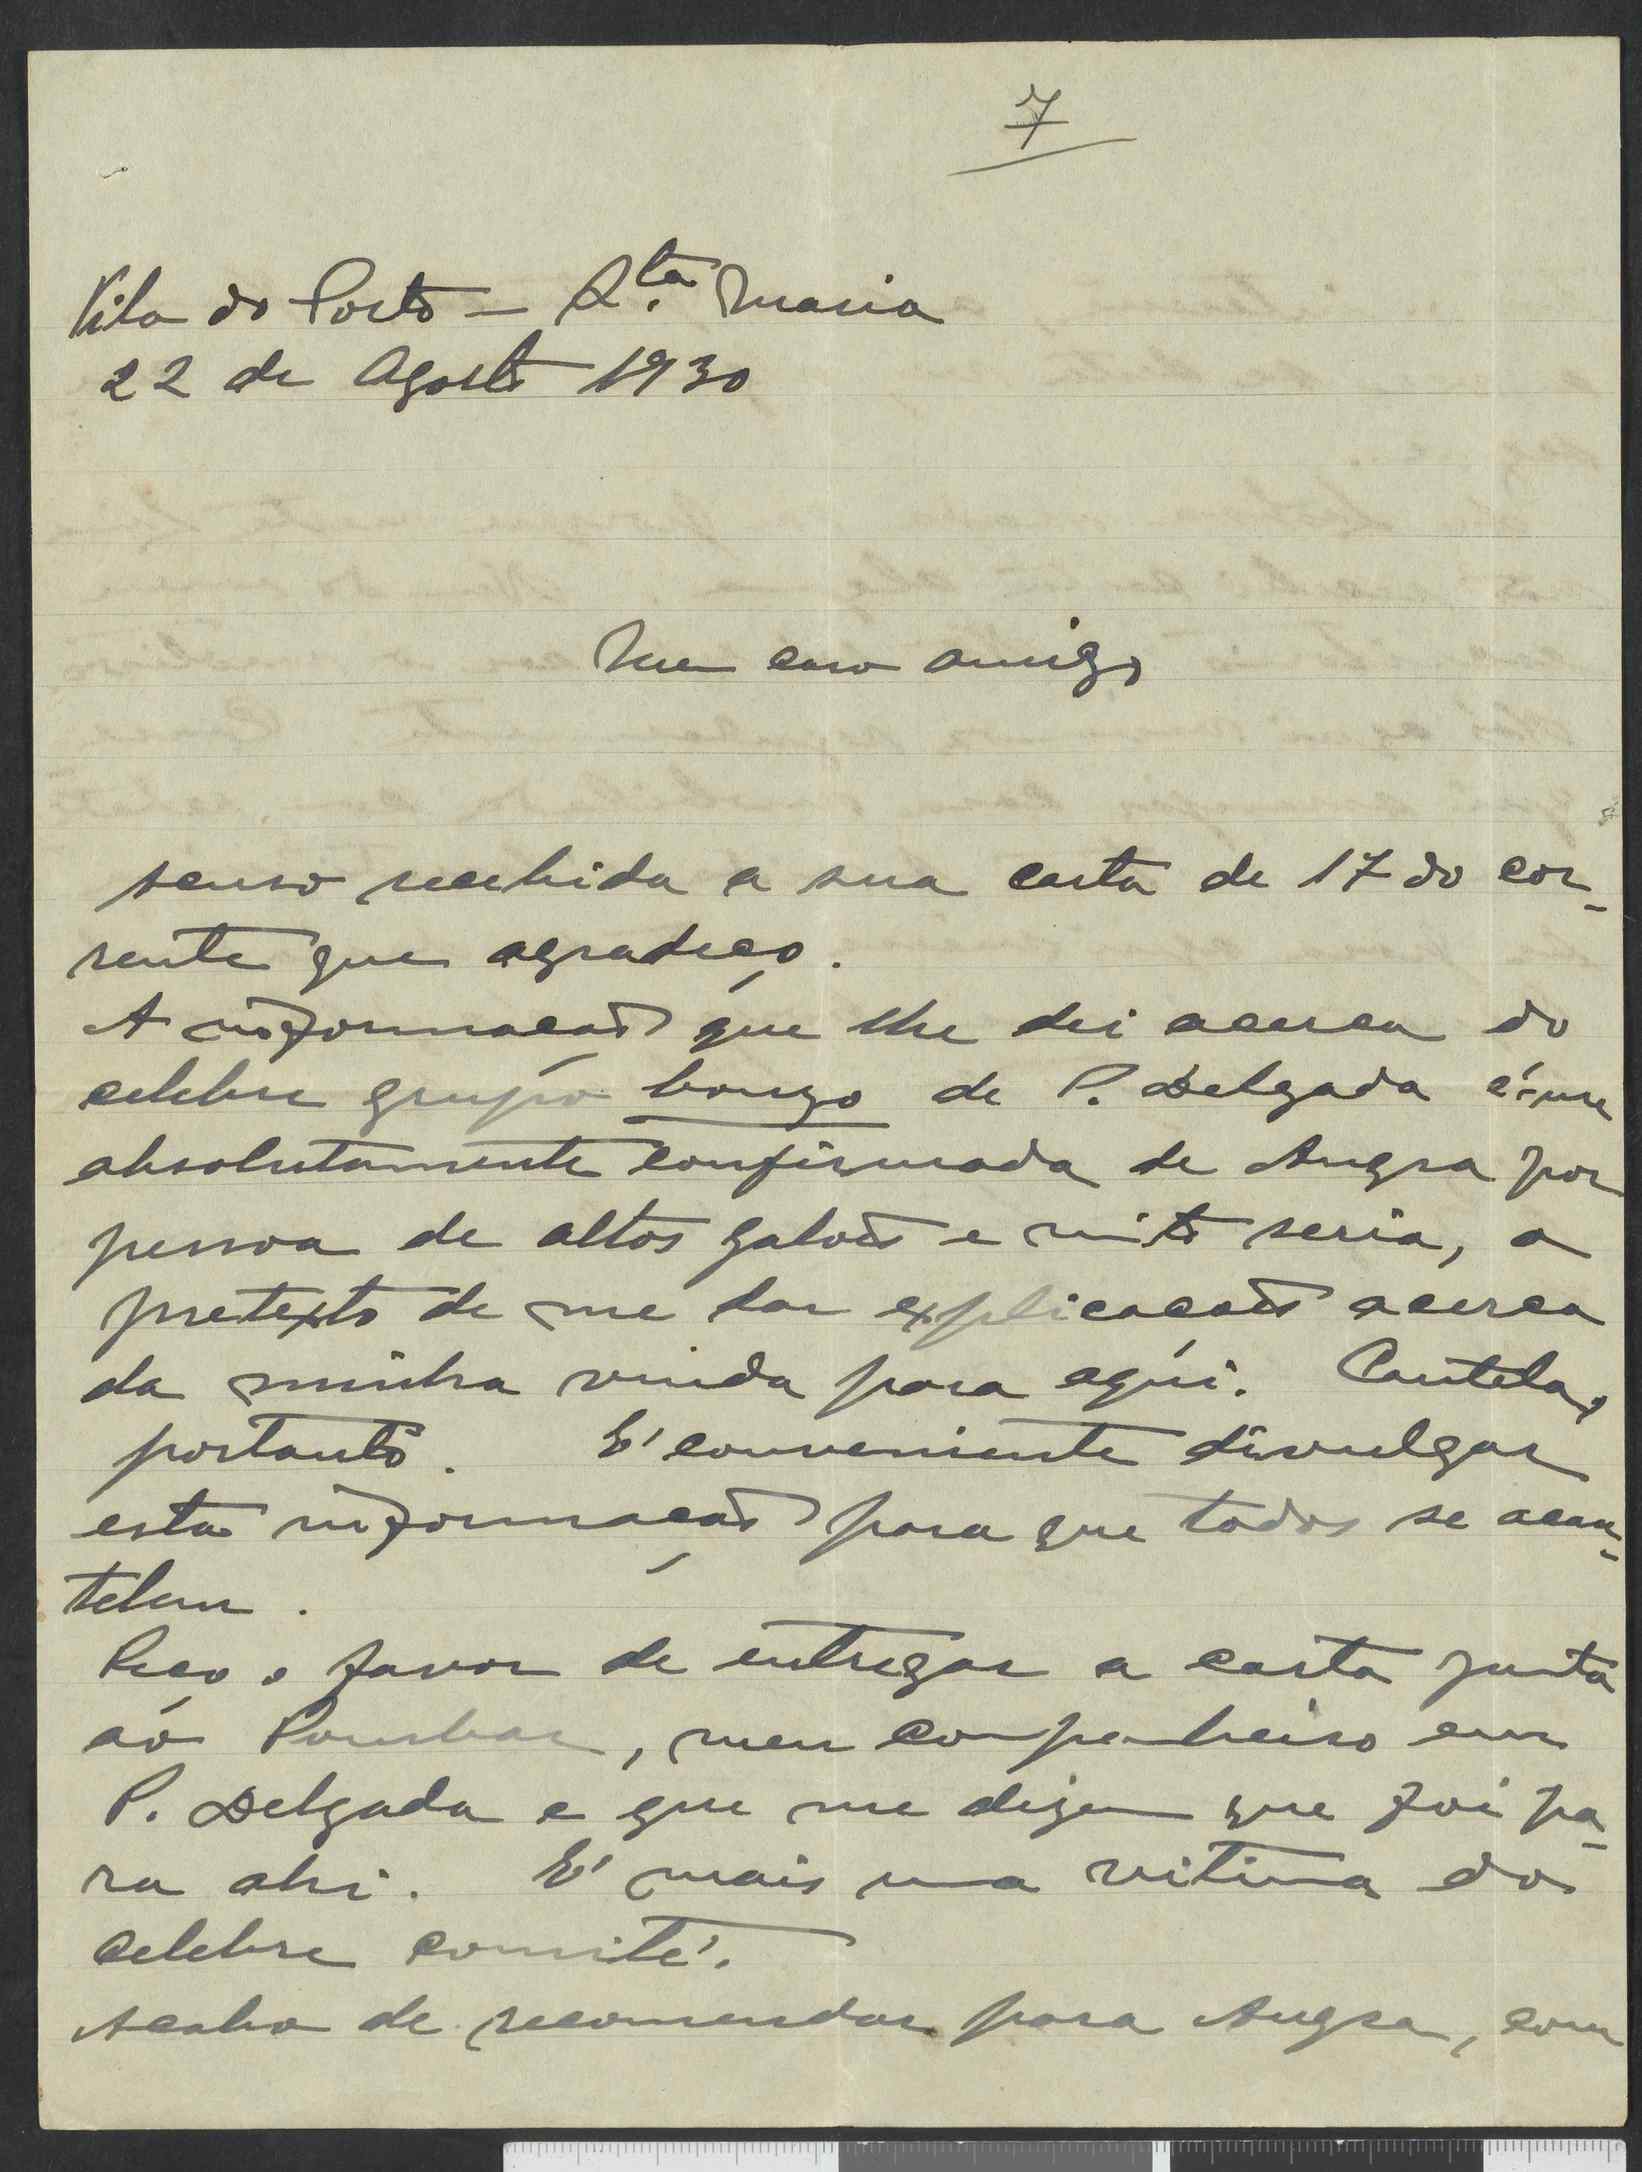 7
Vila do Porto - Sta. Maria
22 de Agosto 1930
Meu caro amigo
Acuso recebida a sua carta de 17 do cor-
rente que agradeço.
A informação que lhe dei acerca do
celebre grupo bonzo de P. Delgada é-me
absolutamente confirmada de Angra por
pessoa de altos galões e mito seria, a
pretexto de me dar explicações acerca
da minha vinda para aqui. Cautela,
portanto. É conveniente divulgar
esta informação para que todos se acau-
telem.
Peço o favor de entregar a carta junta
ao Pombar, meu companheiro em
P. Delgada e que me dizem que foi pa-
ra ahi. É mais uma vitima do
celebre comité.
Acabo de recomendar para Angra, com